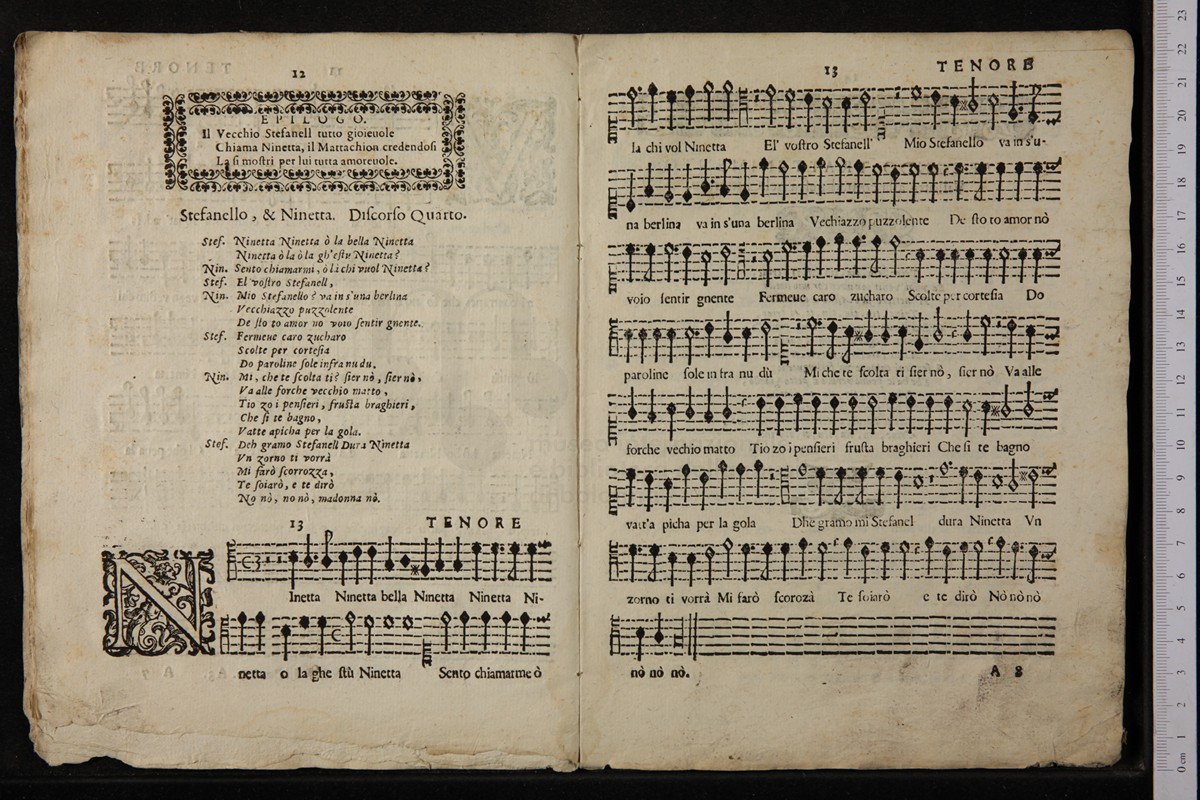 12
EPILOGO.
Il Vecchio Stefanell tutto gioieuole
Chiama Ninetta, il Mattachion credendosi
La si mostri per lui tutta amoreuole.
Stefanello, & Ninetta. Discorso Quarto.
Stef. Ninetta Ninetta ò la bella Ninetta
Ninetta ò la ò la gh'estu Ninetta?
Nin. Sento chiamarmi, ò li chi vuol Ninetta?
Stef. El vostro Stefanell,
Nin. Mio Stefanello? va in s'una berlina
Vecchiazzo puzzolente
De sto to amor no voio sentir gnente.
Stef. Fermeue caro zucharo
Scolte per cortesia
Do paroline sole infra nu du.
Nin. Mi, che te scolta ti? sier nò, sier nò,
Va alle forche vecchio matto,
Tio zo i pensieri, frusta braghieri,
Che si te bagno,
Vatte apicha per la gola.
Stef. Deh gramo Stefanell Dura Ninetta
Vn zorno ti vorrà
Mi farò scorrozza,
Te soiarò, e te dirò
No nò, no nò, madonna nò.
13 TENORE
N
Inetta Ninetta bella Ninetta Ninetta Ni-
netta o la ghe stù Ninetta Sento chiamarme ò
13 TENORE
la chi vol Ninetta El' vostro Stefanell' Mio Stefanello va in s'u-
na berlina va in s'una berlina Vechiazzo puzzolente De sto to amor nò
voio sentir gnente Fermeue caro zucharo Scolte per cortesia Do
paroline sole in fra nu dù Mi che te scolta ti sier nò, sier nò Va alle
forche vechio matto Tio zo i pensieri frusta braghieri Che si te bagno
vatt'a picha per la gola Dhe gramo mi Stefanel dura Ninetta Vn
zorno ti vorrà Mi farò scorozà Te soiarò e te dirò Nò nò nò
nò nò nò.
A 8
0 cm 1 2 3 4 5 6 7 8 9 10 11 12 13 14 15 16 17 18 19 20 21 22 23